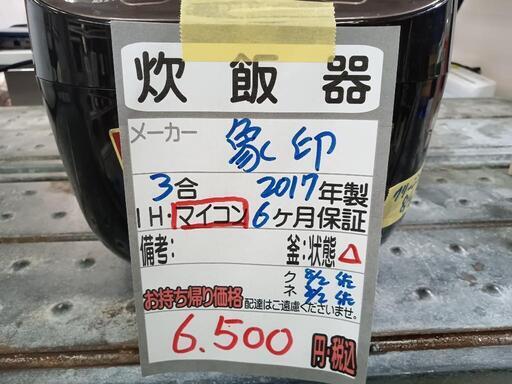 炊飯器
メーカー 象印
3合 2017年製
IH・マイコン 6ヶ月保証
備考： 釜：状態 △
ク 8/2
ネ 8/2
お持ち帰り価格 配達はご遠慮くださいませ。
6.500 円・税込